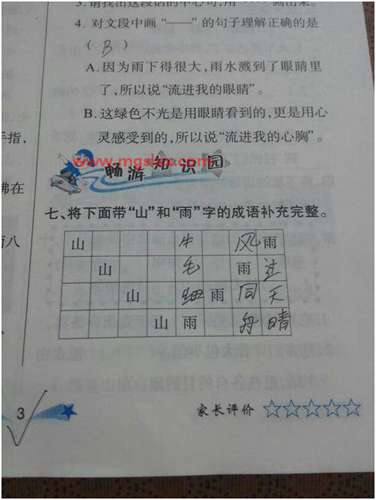 3. 请找出这段话的中心句,用“  ”画出来。
4. 对文段中画“——”的句子理解正确的是
( B )
A. 因为雨下得很大,雨水溅到了眼睛里
了,所以说“流进我的眼睛”。
B. 这绿色不光是用眼睛看到的,更是用心
灵感受到的,所以说“流进我的心胸”。
手指,
畅游知识园
七、将下面带“山”和“雨”字的成语补充完整。
山 牛 风 雨
山 毛 雨 过
山 细 雨 同 天
山 雨 舟 晴
3
家长评价 ☆☆☆☆☆